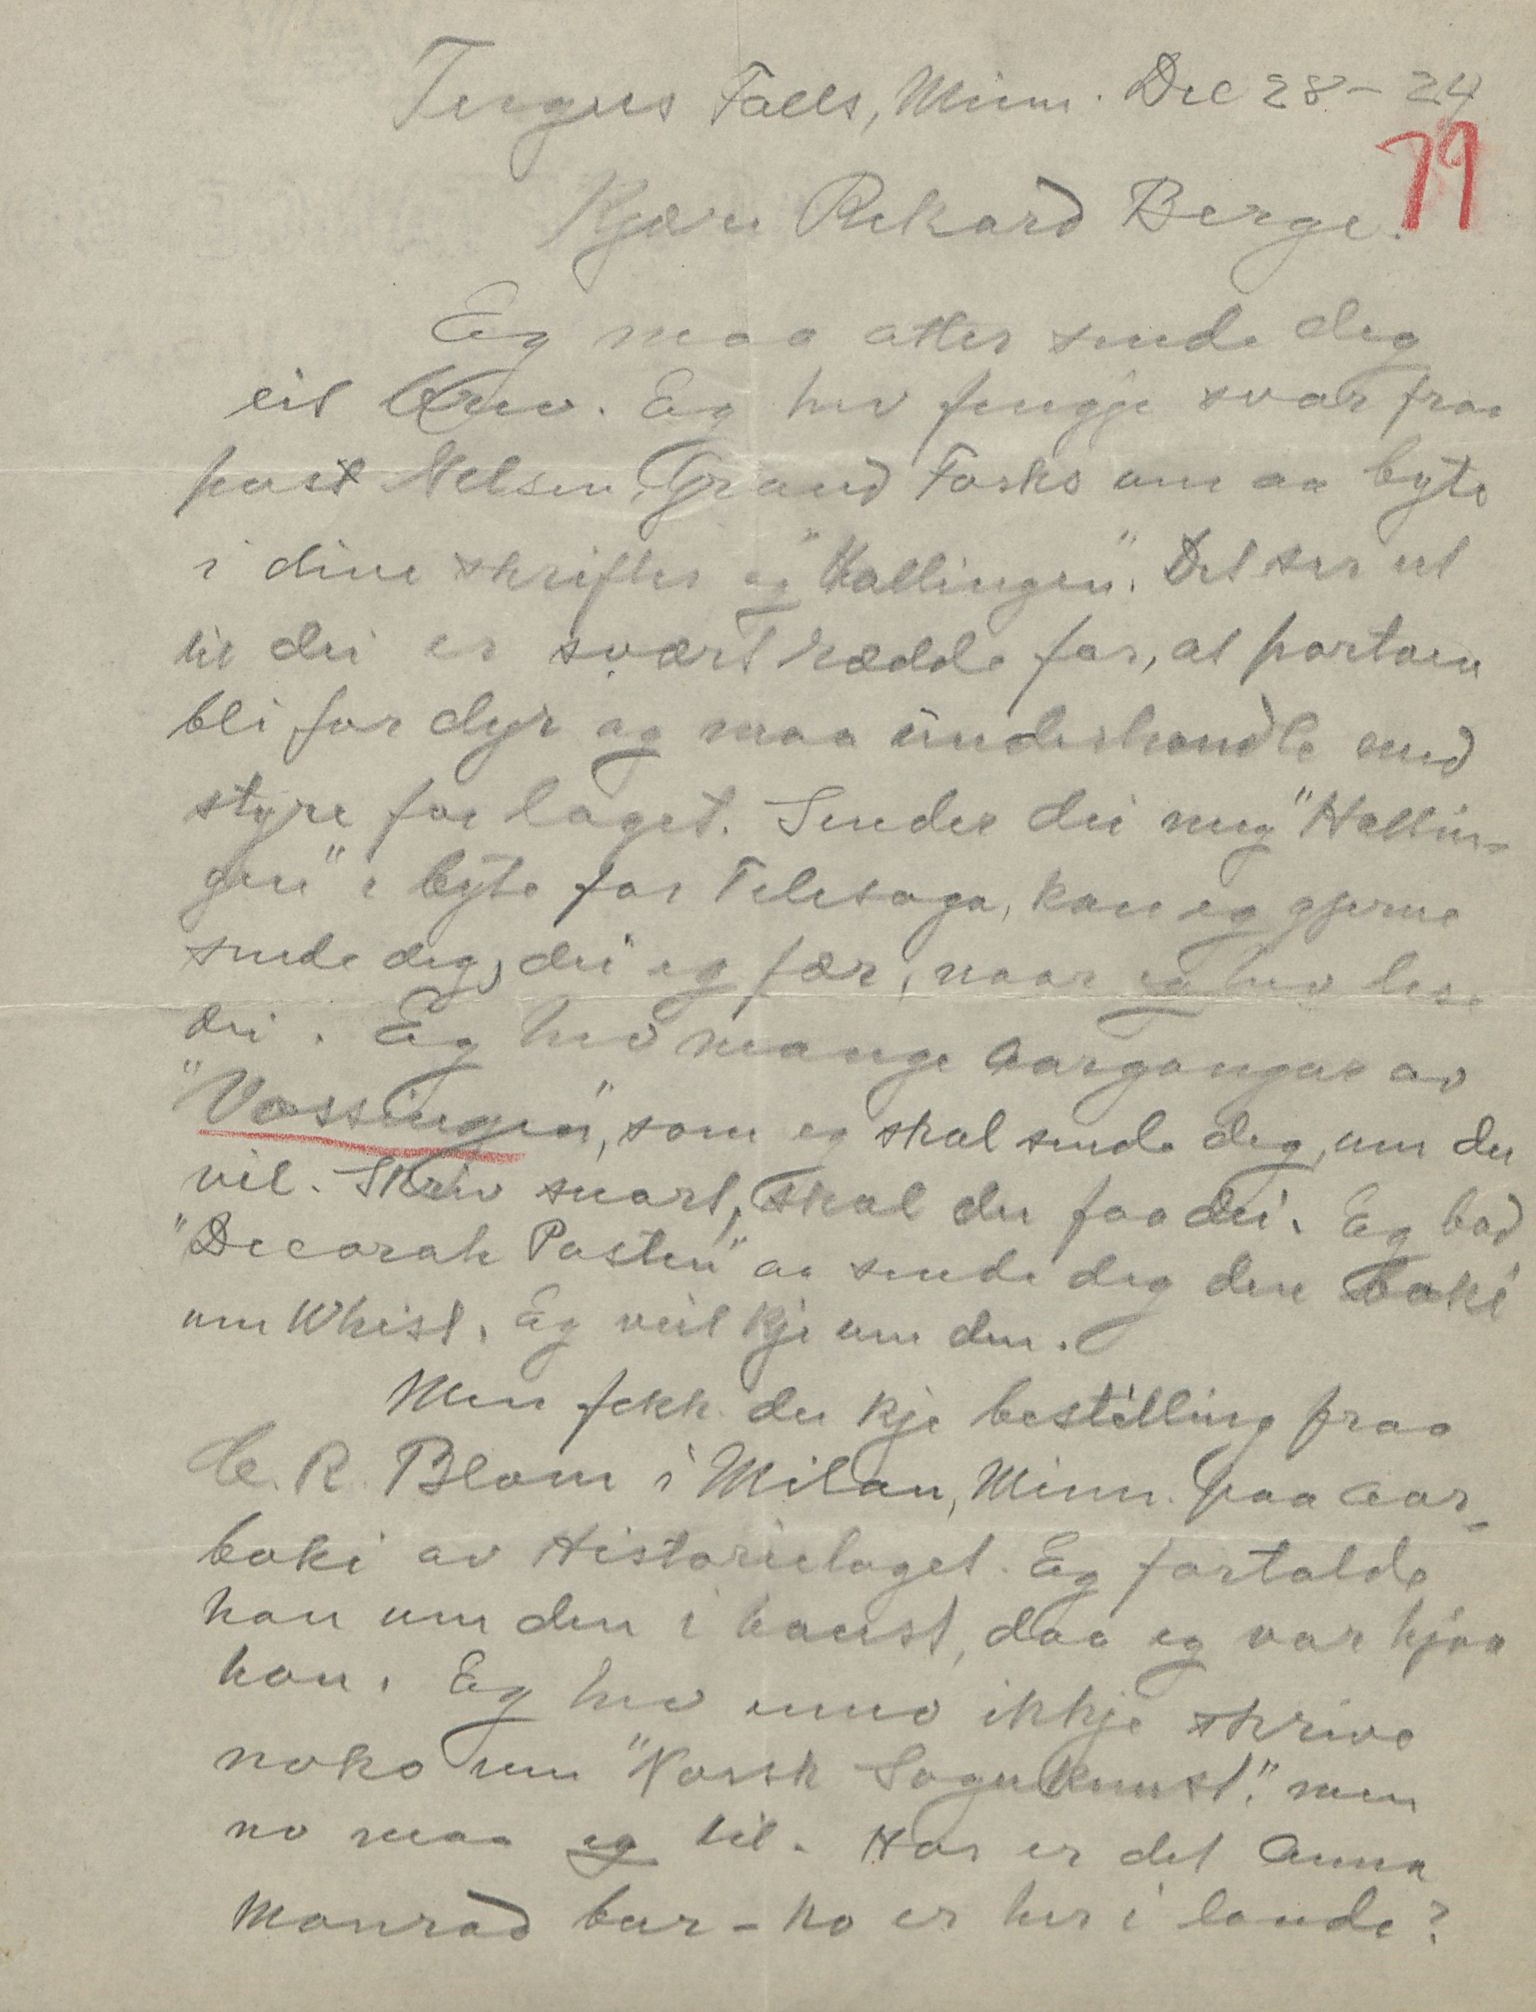 Fergus Falls, Minn. Dec 28 - 24
79
Kjære Rikard Berge.
Eg maa atter sende deg
eit brev. Eg hev fengje svar fraa
past Nelsen, Grand Forks um aa byte
i dine skrifter og "Hallingen". Det ser ut
til dei er svært rædde for, at portoen
bli for dyr og maa underhandle med
styre for laget. Sender dei meg "Hallin-
gen" i byte for Telesoga, kan eg gjerne
sende deg, dei eg fær, naar eg hev lese
dei. Eg hev mange Aargangar av
"Vossingen", som eg skal sende deg, um du
vil. Skriv snart, skal du faa dei. Eg bad
"Decorah Posten" aa sende deg den boki
um Whist. Eg veit kje um den.
Men fekk du kje bestilling fraa
C. R. Blom i Milan, Minn. paa Aar-
boki av Historielaget. Eg fortalde
han um den i haust, daa eg var hjaa
han. Eg hev enno ikkje skrive
noko um "Norsk Sogukunst." men
no maa eg til. Hor er det Anna
Monrad bur - ho er her i lande?